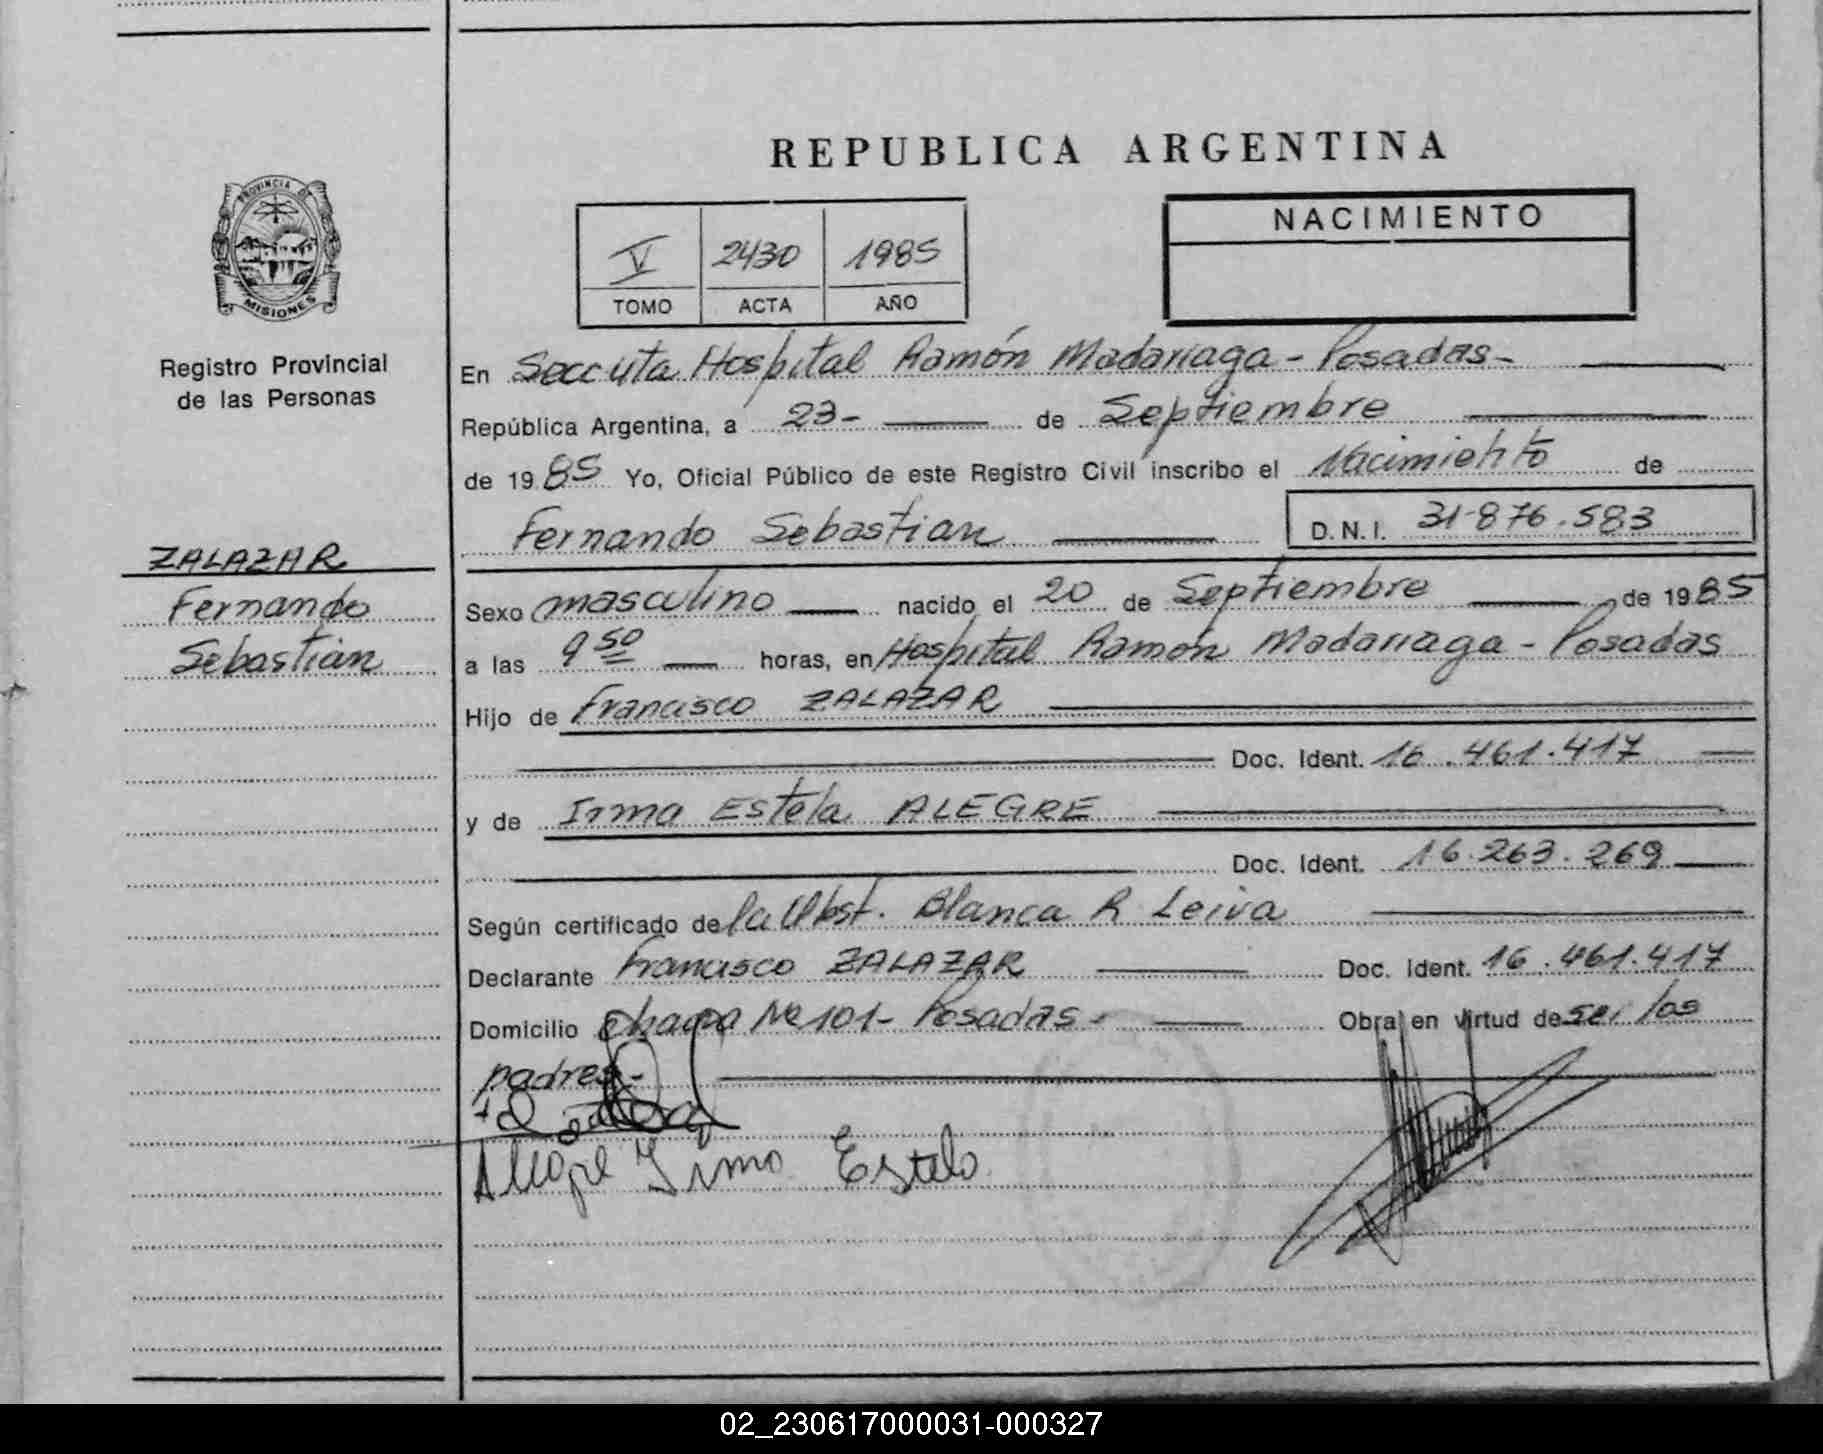 REPUBLICA ARGENTINA
PROVINCIA DE
MISIONES
Registro Provincial
de las Personas
V 2430 1985
TOMO ACTA AÑO
NACIMIENTO
En Hospital Ramón Madariaga - Posadas -
República Argentina, a 23- de Septiembre
de 1985 Yo, Oficial Público de este Registro Civil inscribo el Nacimiento de
Fernando Sebastian D.N.I. 31-876.583
ZALAZAR
Fernando
Sebastian
Sexo masculino nacido el 20 de Septiembre de 1985
a las 9 50 horas, en Hospital Ramón Madariaga - Posadas
Hijo de Francisco ZALAZAR
Doc. Ident. 16.461.417
y de Irma Estela ALEGRE
Doc. Ident. 16.263.269
Según certificado de la Obst. Blanca R Leiva
Declarante Francisco ZALAZAR Doc. Ident. 16.461.417
Domicilio Nº 101- Posadas - Obra en virtud de ser los
padres-
Alegre Irma Estela
02_230617000031-000327